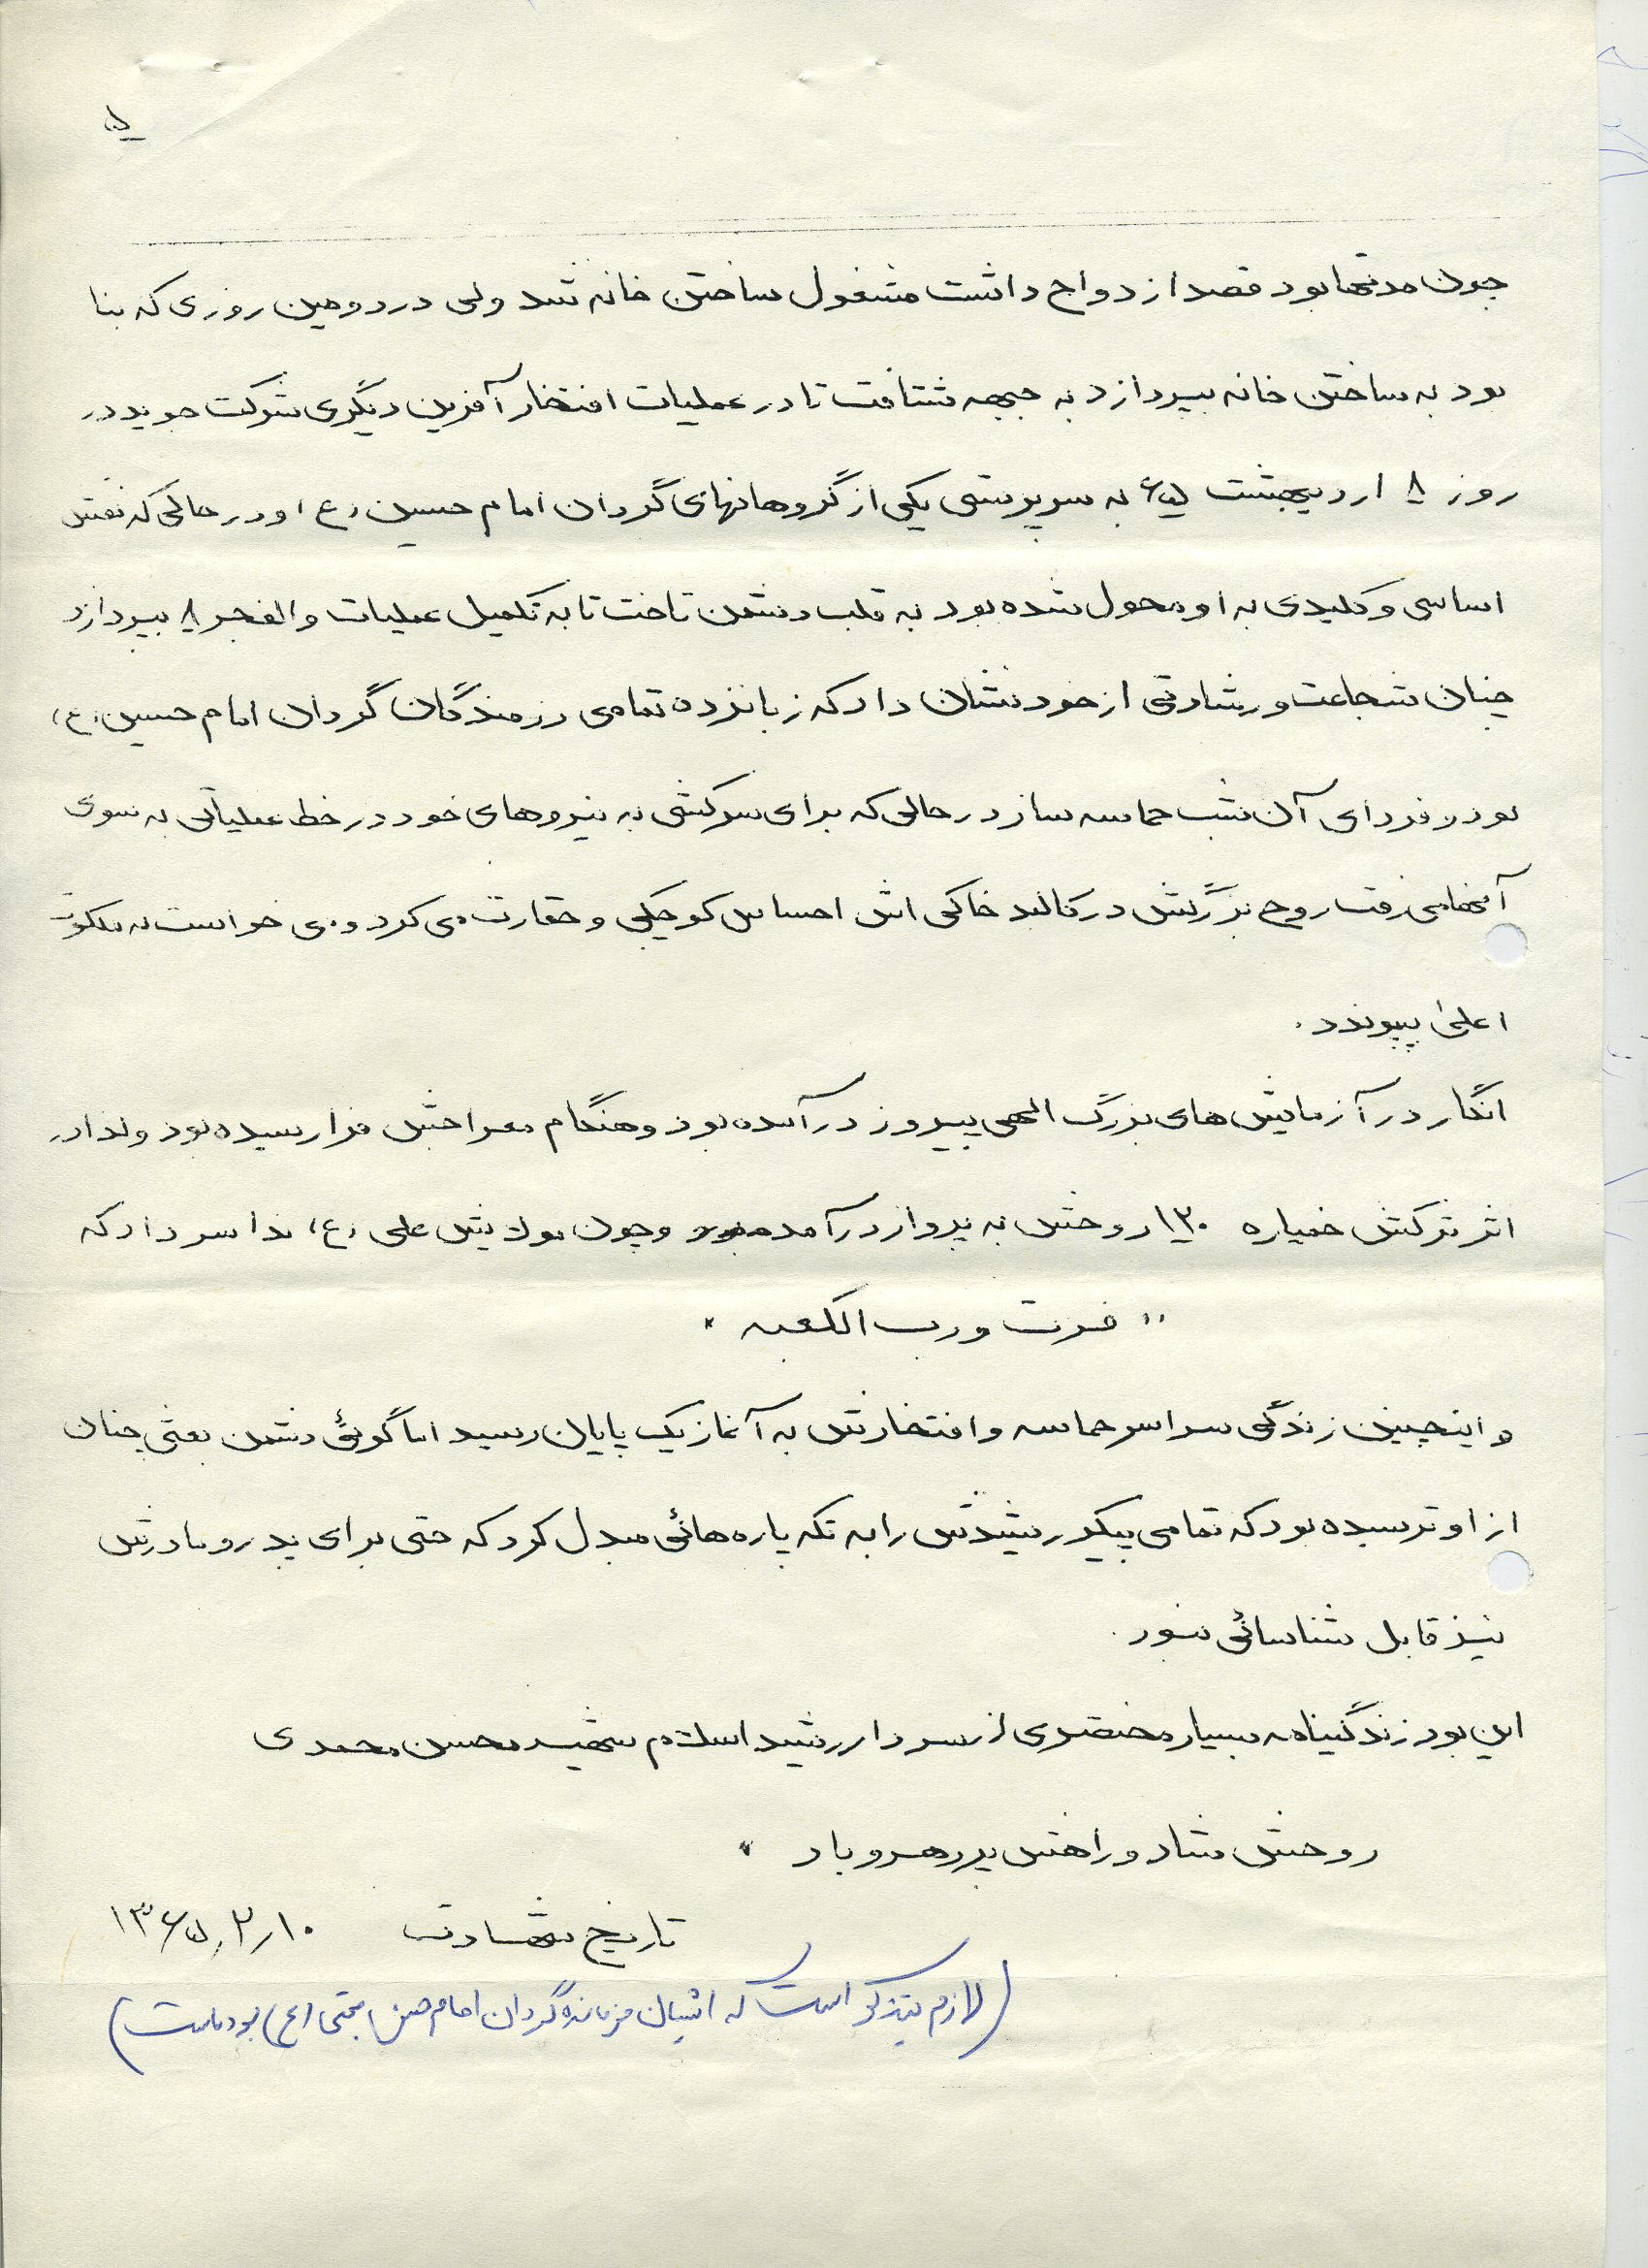 ۵
چون مدتها بود قصد ازدواج داشت مشغول ساختن خانه شد ولی در دومین روزی که بنا
بود به ساختن خانه بپردازد به جبهه شتافت تا در عملیات افتخار آفرین دیگری شرکت جوید در
روز ۸ اردیبهشت ۶۵ به سرپرستی یکی از گروهانهای گردان امام حسین (ع) و در حالی که نقش
اساسی و کلیدی به او محول شده بود به قلب دشمن تاخت تا به تکمیل عملیات والفجر ۸ بپردازد
چنان شجاعت و رشادتی از خود نشان داد که زبانزده تمامی رزمندگان گردان امام حسین (ع)
بود در فردای آن شب حماسه ساز در حالی که برای سرکشی به نیروهای خود در خط عملیاتی به سوی
آنها می رفت روح بزرگش در کالبد خاکی اش احساس کوچکی و حقارت می کرد و می خواست به ملکوت
اعلی بپیوندد.
انگار در آزمایش های بزرگ الهی پیروز درآمده بود و هنگام معراجش فرا رسیده بود و لذا در
اثر ترکش خمپاره ۱۲۰ روحش به پرواز درآمد و چون مولایش علی (ع) ندا سر داد که
" فزت و رب الکعبه "
و اینچنین زندگی سراسر حماسه و افتخارش به آغاز یک پایان رسید اما گوئی دشمن بعثی چنان
از او ترسیده بود که تمامی پیکر رشیدش را به تکه پاره هائی مبدل کرد که حتی برای پدر و مادرش
نیز قابل شناسائی نبود.
این بود زندگینامه بسیار مختصری از سردار رشید اسلام شهید محسن محمدی
روحش شاد و راهش پر رهرو باد "
تاریخ شهادت ۱۳۶۵٫۲٫۱۰
(لازم بتذکر است که ایشان فرمانده گردان امام حسن مجتبی (ع) بوده است)